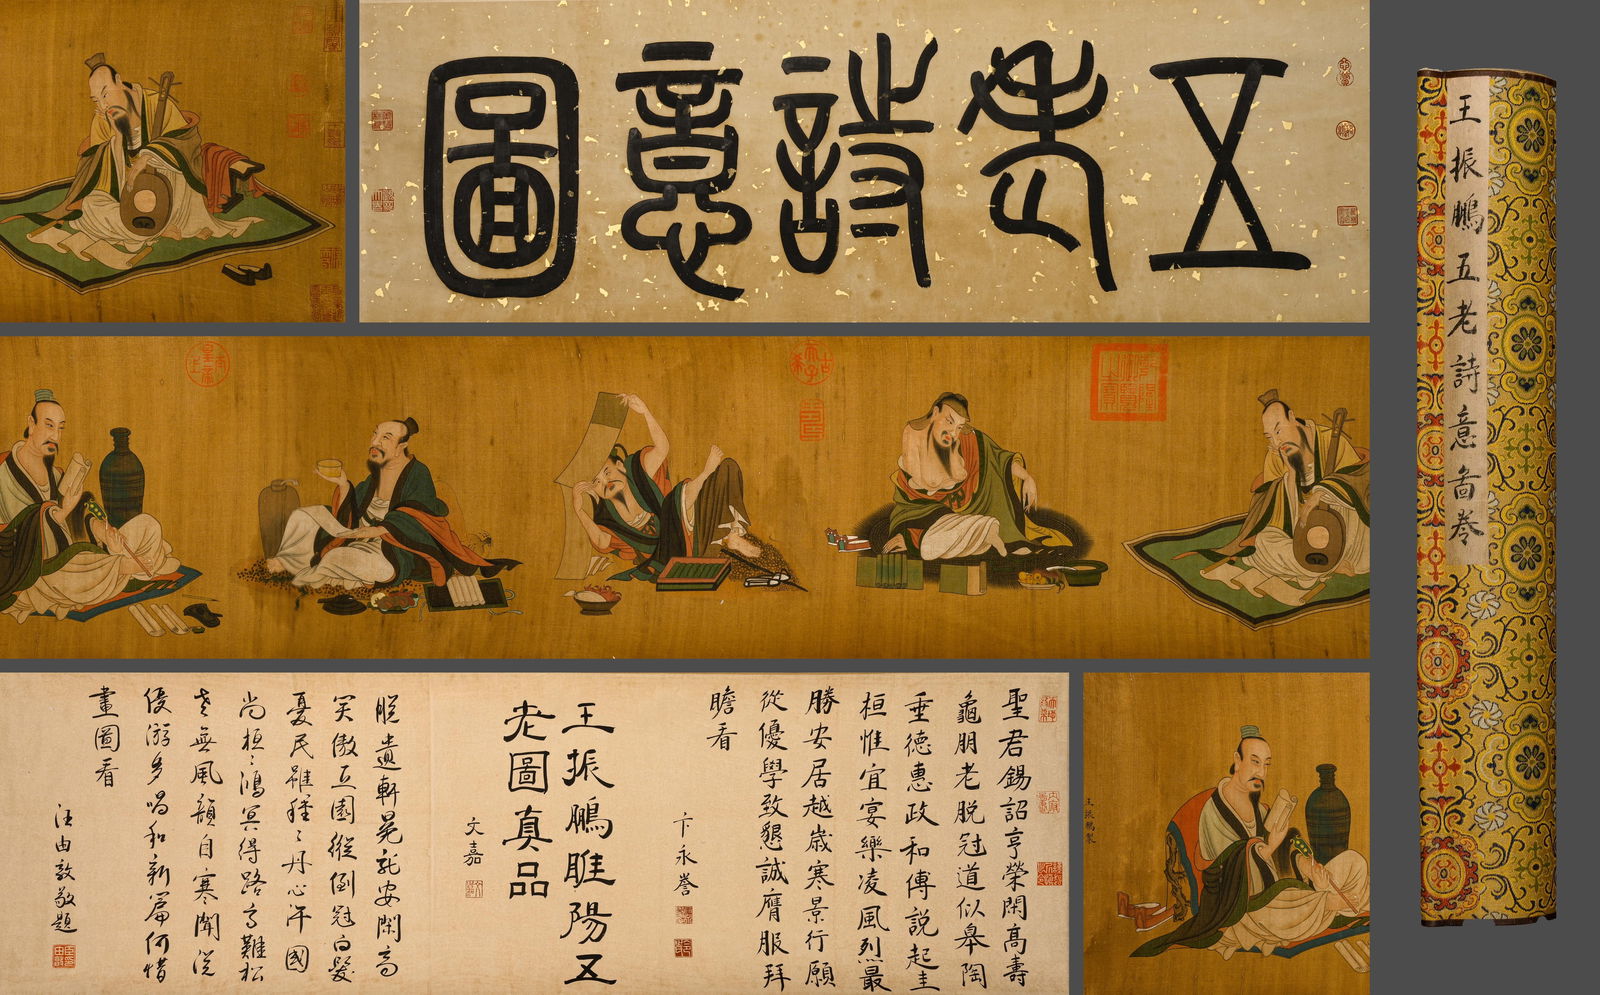 五老詩意圖
王振鵬五老詩意圖卷
乾隆御覽之寶
古稀天子
太上皇帝
王振鵬製
聖君錫詔亨榮閑高壽
龜朋老脱冠道似皋陶
垂德惠政和傅説起圭
桓惟宜宴樂凌風烈最
勝安居越歲寒景行願
從優學致懇誠膺服拜
瞻看
卞永譽
王振鵬睢陽五
老圖真品
文嘉
脱遺軒冕就安閑高
笑傲丘園縱倒冠白髮
憂民雖種種丹心汗國
尚桓桓鴻冥得路高難
老無風韻自寒聞説
優游多唱和新篇何惜
畫圖看
汪由敦敬題